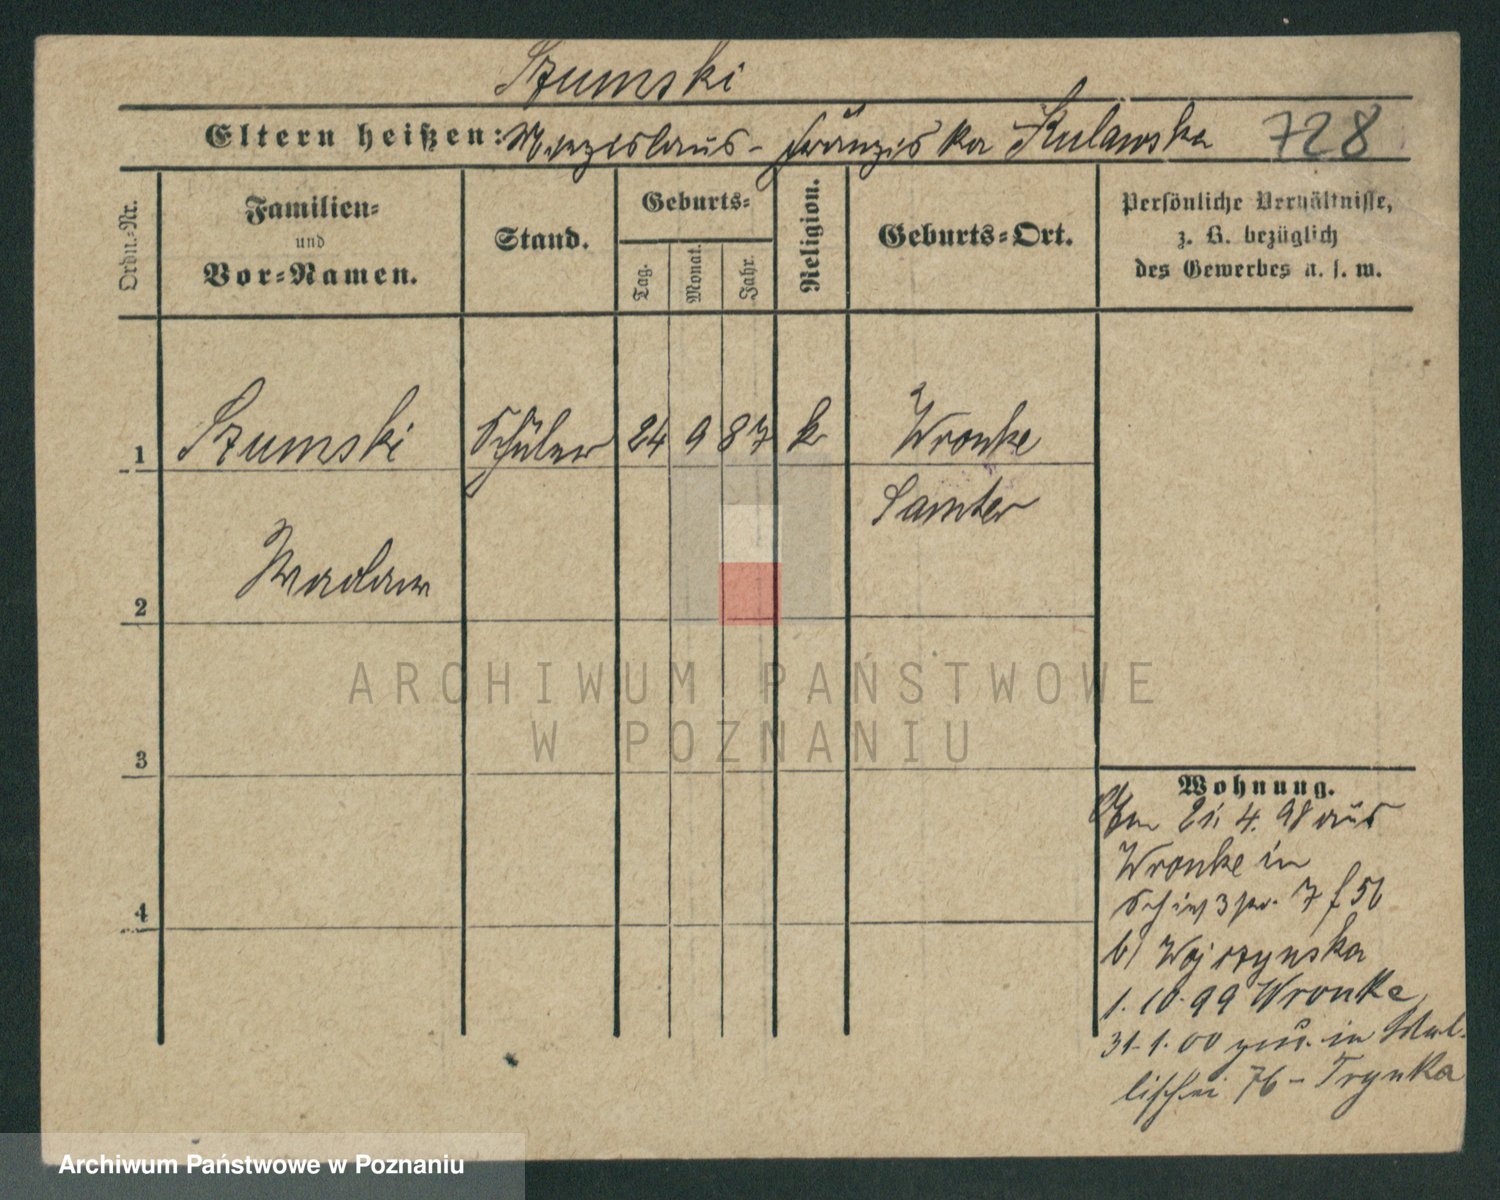 Szumski
Eltern heißen: Miezislaus - Franziska Kulawska 728
Ordn.-Nr.
Familien-
und
Vor-Namen.
Stand.
Geburts-
Tag.
Monat.
Jahr.
Religion.
Geburts-Ort.
Persönliche Verhältnisse,
z. B. bezüglich
des Gewerbes u. s. w.
1 Szumski Schüler 24 9 87 k Wronke
Samter
2 Waclaw
3
4
Wohnung.
Am 21. 4. 98 aus
Wronke in
7
b/
1. 10. 99 Wronke
31. 1. 00 zur. in Wal-
lischei 76 - Trynka
ARCHIWUM PAŃSTWOWE
W POZNANIU
Archiwum Państwowe w Poznaniu